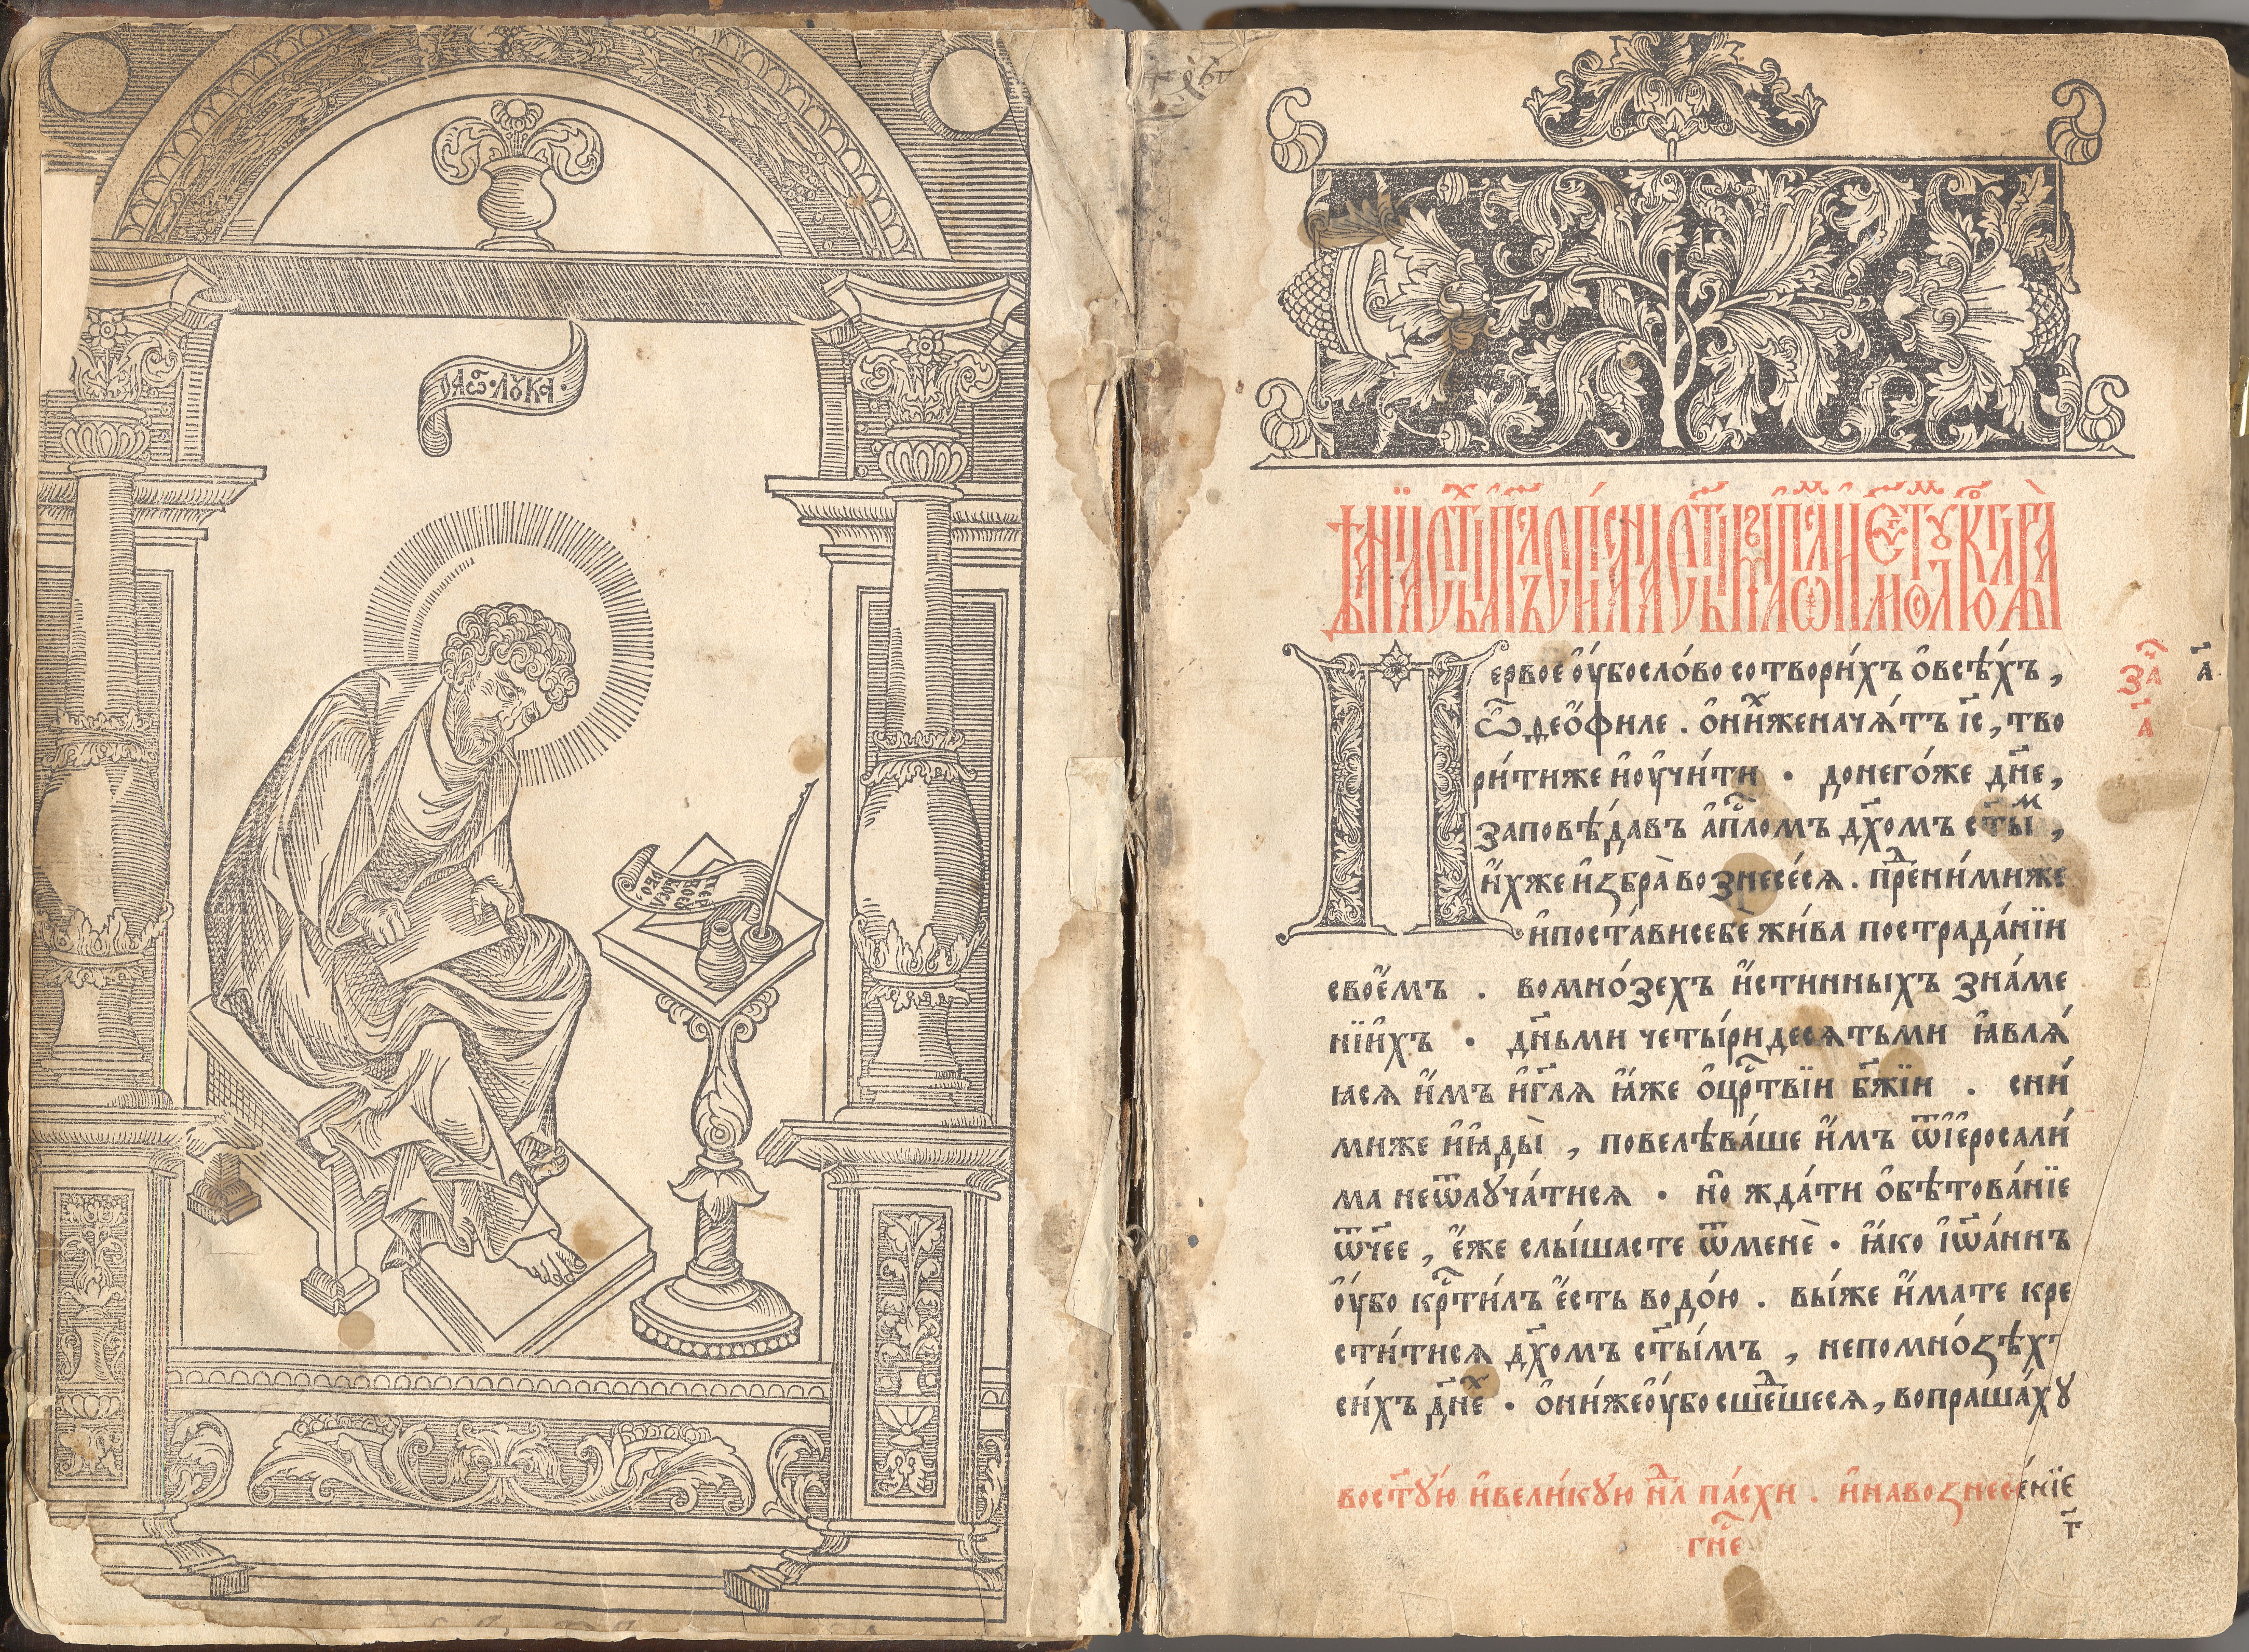 ОАП҃Ѿ · ЛУКА ·
ервое ѹ҆́бо сло́во сотвори́хъ ѻ҆всѣ́хъ ,
Ѽ ѳео҆́филе . ѻ҆ни́хже нача́тъ і҆с҃ , тво
ри́тиже и҆ѹ҆чи́ти · донего́же дн҃е ,
заповѣ́давъ а҆пⷭ҇ломъ дх҃омъ ст҃ы́мъ ,
и҆́хже и҆ꙁбра̀ воꙁнесе́сѧ . преⷣни́миже
и҆поста́ви себе жи́ва пострада́нїи
свое҆́мъ . во мно́зехъ и҆́стинныхъ зна́ме
нїи҆хъ · дн҃ьми четы́ридесѧтьми ꙗ҆влѧ́
ꙗсѧ и҆́мъ и҆гл҃ѧ ꙗ҆́же ѻ҆црⷭ҇твїи бж҃їи . сни́
миже и҆ꙗ҆ды̀ , повелѣва́ше и҆́мъ ѿі҆еросали́
ма неѿлꙋча́тисѧ · но҆ жда́ти ѻ҆бѣтова́нїе
ѿч҃ее , є҆́же слы́шасте ѿменѐ · ꙗ҆́ко і҆ѡ҃а́ннъ
ѹ҆́бо крⷭ҇ти́лъ є҆́сть водо́ю . вы́же и҆́мате кре
сти́тисѧ дх҃омъ ст҃ы́мъ , непомно́ꙁѣхъ
си́хъ дн҃еⷯ · ѻ҆ни́же ѹ҆́бо сшеⷣшесѧ , вопраша́хꙋ
заⷱ҇
а҃
а҃
вост҃ꙋ́ю и҆вели́кꙋю нлⷣ па́схи . и҆навоꙁнесе́нїе
гнⷭ҇е
г҃